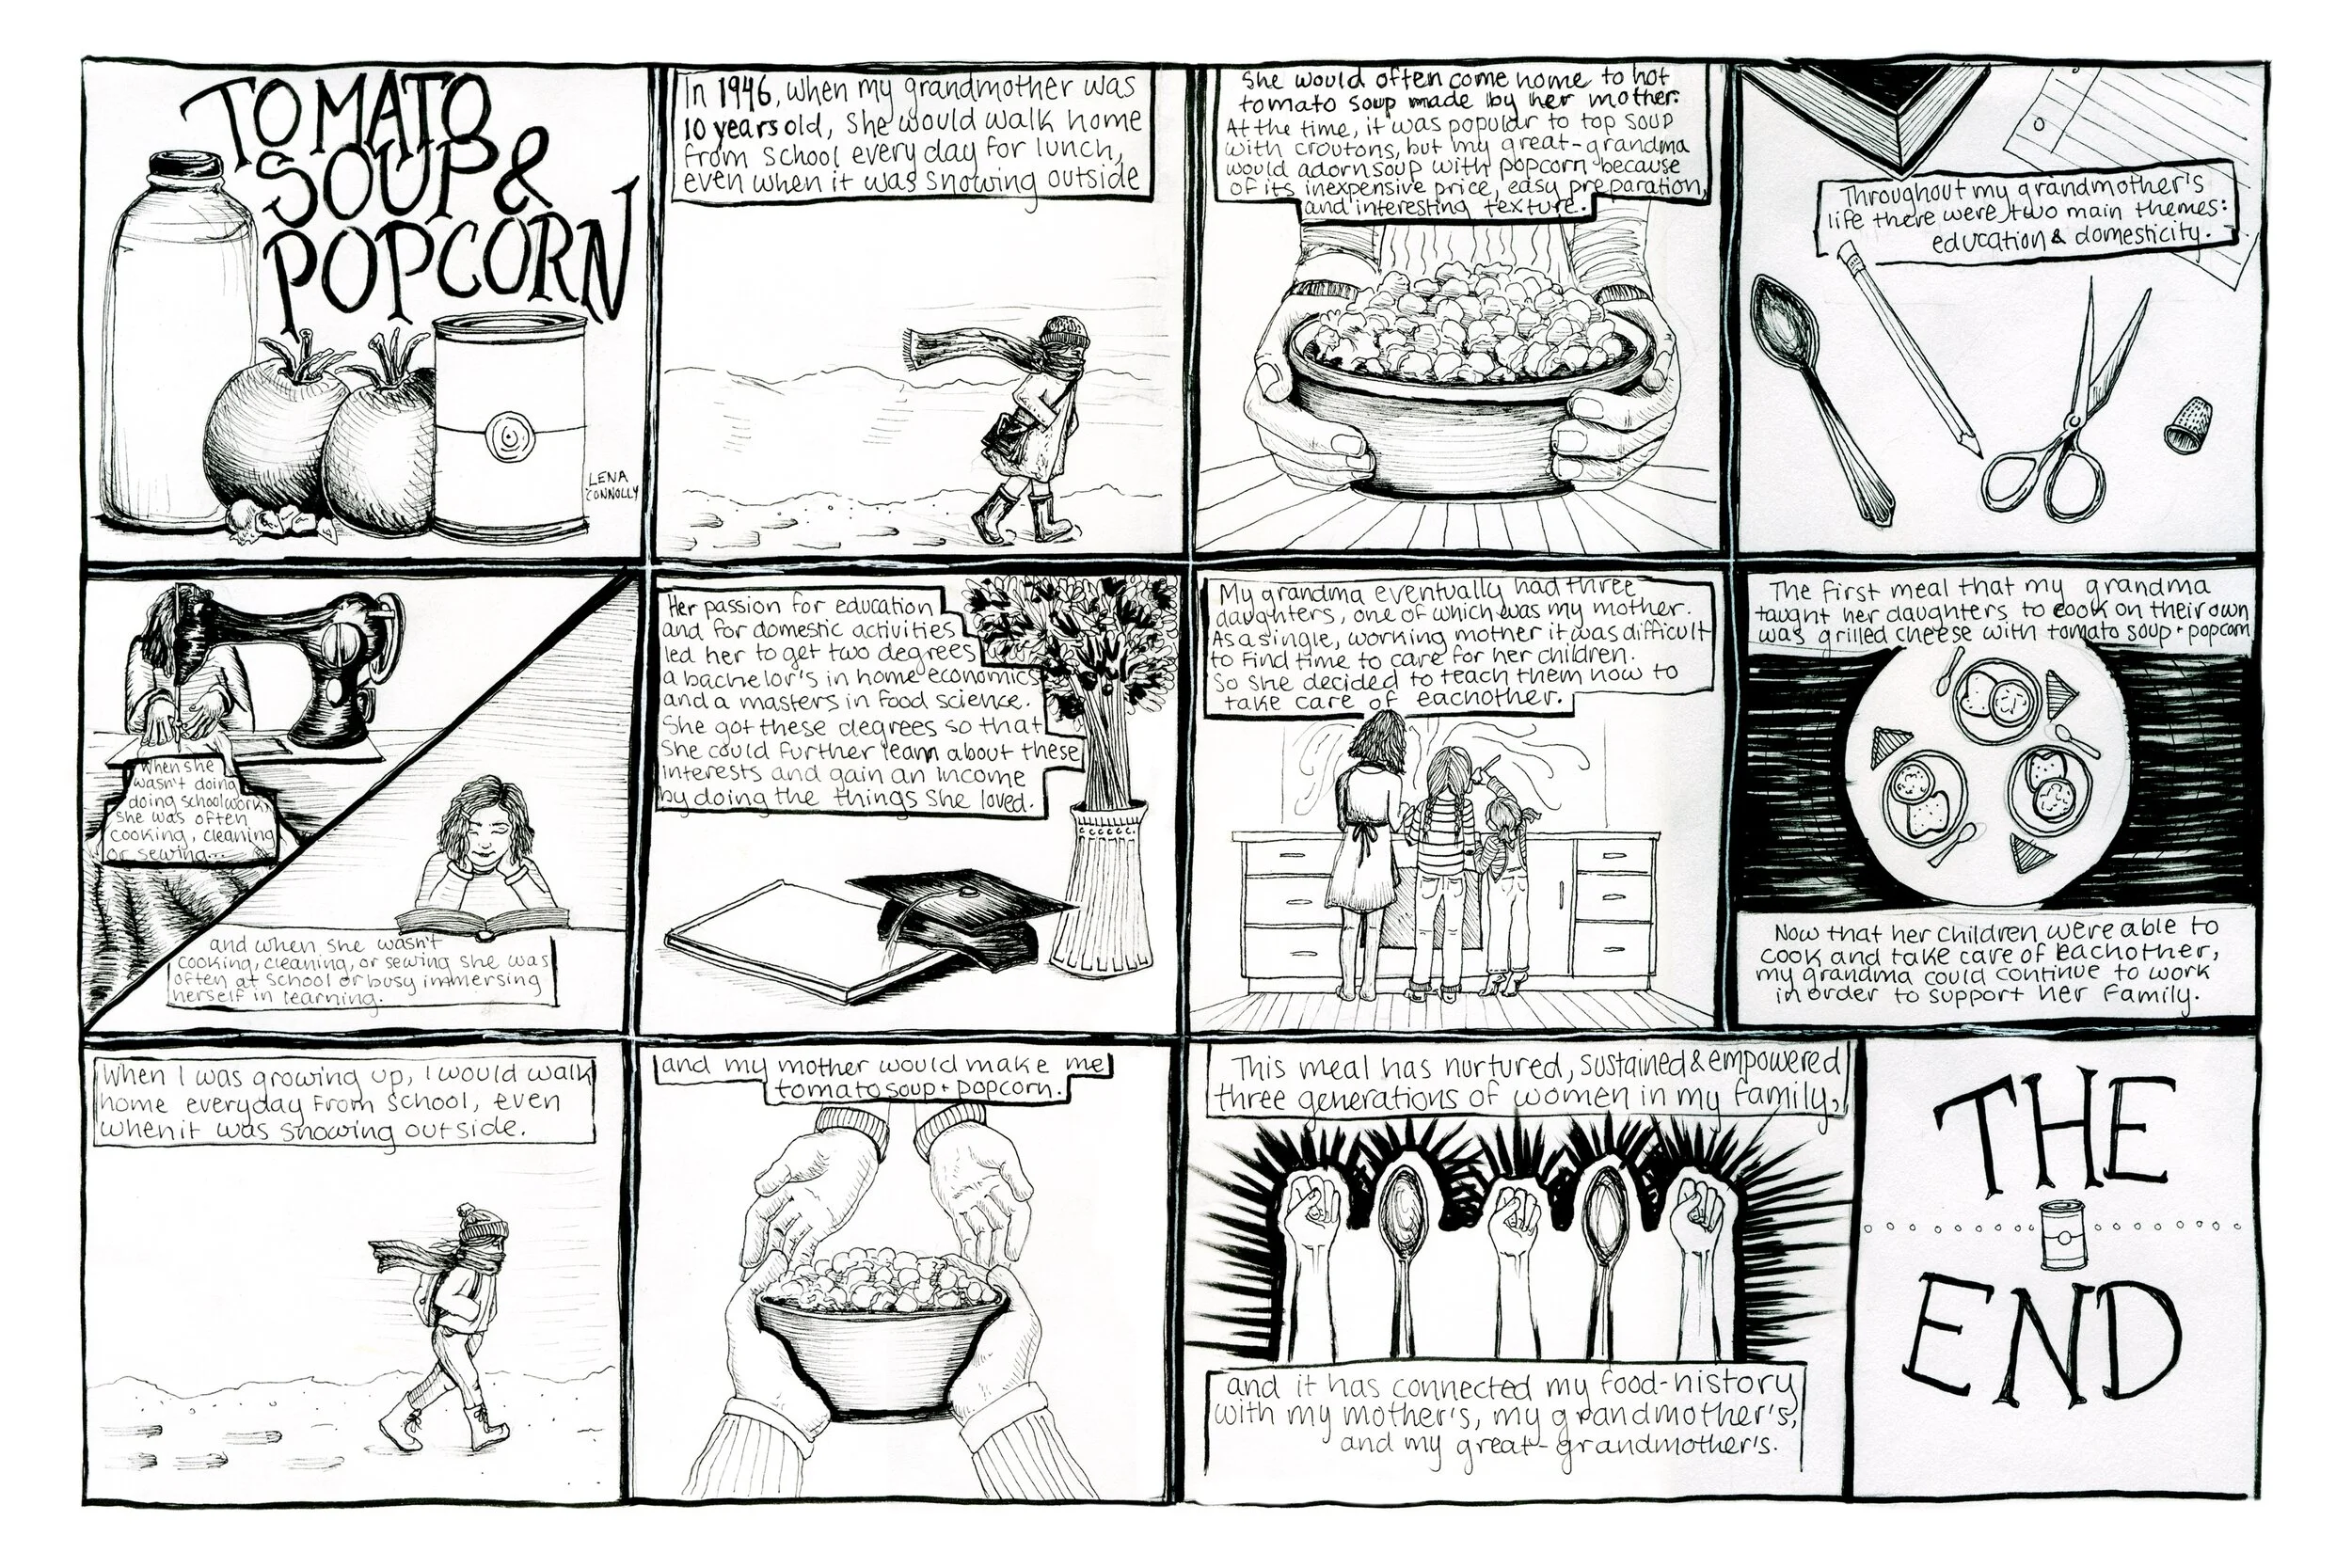 TOMATO
SOUP &
POPCORN
LENA
CONNOLLY
In 1946, when my grandmother was
10 years old, she would walk home
from school every day for lunch,
even when it was snowing outside
She would often come home to hot
tomato soup made by her mother.
At the time, it was popular to top soup
with croutons, but my great-grandma
would adorn soup with popcorn because
of its inexpensive price, easy preparation,
and interesting texture.
Throughout my grandmother's
life there were two main themes:
education & domesticity.
When she
wasn't doing
doing schoolwork,
she was often
cooking, cleaning
or sewing...
and when she wasn't
cooking, cleaning, or sewing she was
often at school or busy immersing
herself in learning.
Her passion for education
and for domestic activities
led her to get two degrees
a bachelor's in home economics
and a masters in food science.
She got these degrees so that
she could further learn about these
interests and gain an income
by doing the things she loved.
My grandma eventually had three
daughters, one of which was my mother.
As a single, working mother it was difficult
to find time to care for her children.
So she decided to teach them how to
take care of eachother.
The first meal that my grandma
taught her daughters to cook on their own
was grilled cheese with tomato soup + popcorn
Now that her children were able to
cook and take care of eachother,
my grandma could continue to work
in order to support her family.
When I was growing up, I would walk
home everyday from school, even
when it was snowing outside.
and my mother would make me
tomato soup + popcorn.
This meal has nurtured, sustained & empowered
three generations of women in my family,
and it has connected my food-history
with my mother's, my grandmother's,
and my great-grandmother's.
THE
END